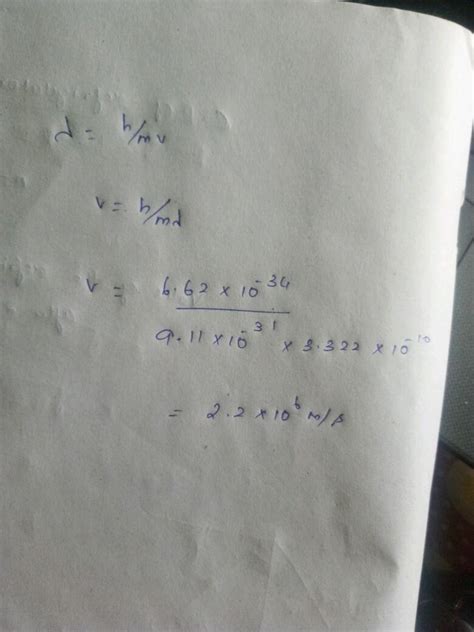 λ = h/mv
v = h/mλ
v = 6.62 × 10^-34 / 9.11 × 10^-31 × 3.322 × 10^-10
= 2.2 × 10^6 m/s